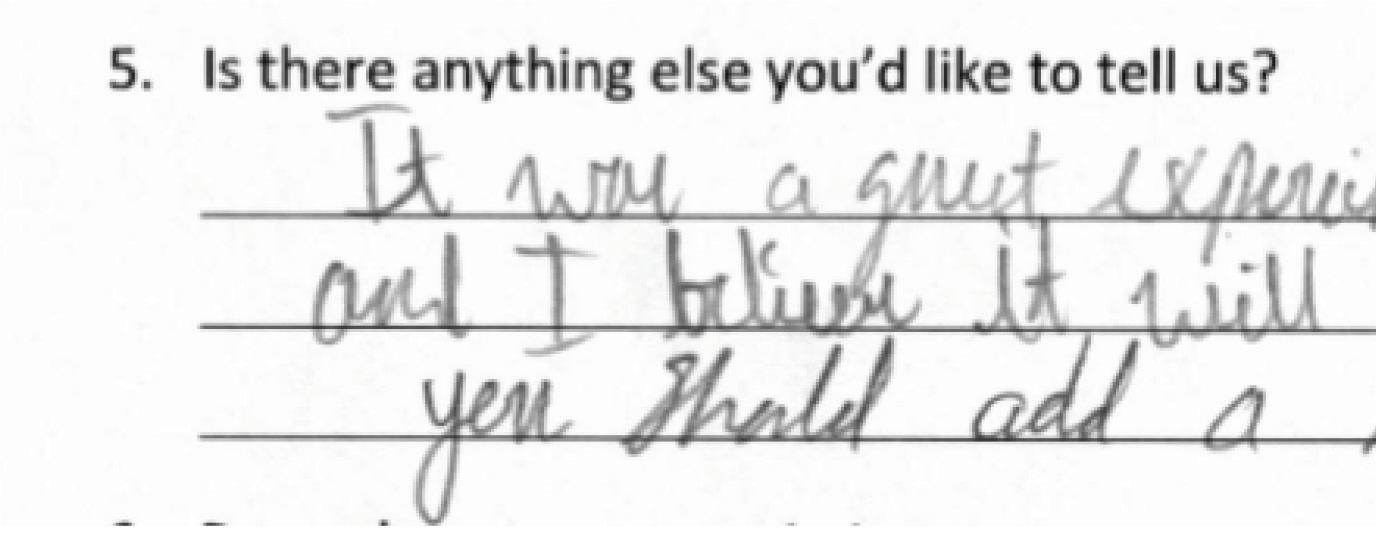 5. Is there anything else you'd like to tell us?
It was a great
and I believe it will
you should add a